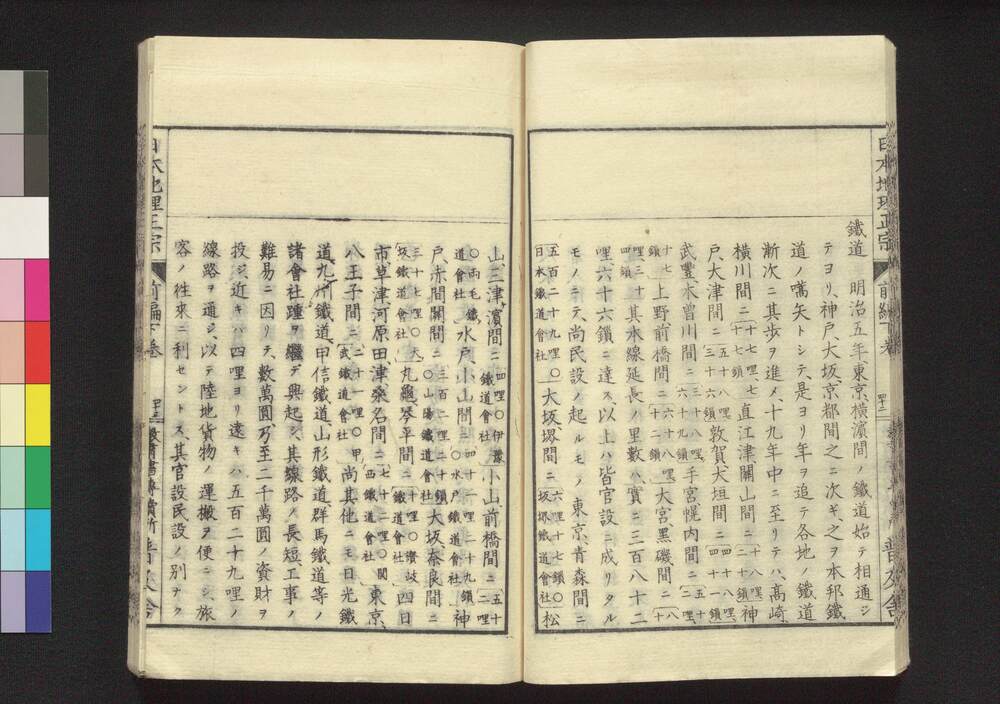 日本地理正宗
前編下卷
四十二
普及舍
鐵道 明治五年、東京橫濱間ノ鐵道始テ相通シ
テヨリ、神戶大坂京都間之ニ次ギ、之ヲ本邦鐵
道ノ嚆矢トシテ、是ヨリ年ヲ追テ各地ノ鐵道
漸次ニ其步ヲ進メ、十九年中ニ至リテハ、高崎
橫川間ニ十七哩七十七鎖直江津關山間ニ十八哩二十鎖神
戶、大津間ニ五十八哩三十六鎖敦賀大垣間ニ四十八哩四十一鎖
武豐木曾川間ニ三十八哩六十九鎖手宮幌內間ニ五十二哩
十七鎖上野前橋間ニ六十八哩二十鎖大宮、黑磯間ニ八十
哩三十四鎖其本線延長ノ里數ハ實ニ三百八十二
哩六十六鎖ニ達ス、以上ハ皆官設ニ成リタル
モノニテ尚民設ノ起ルモノ東京靑森間ニ
五百二十九哩〇日本鐵道會社大坂堺間ニ六哩十七鎖〇坂堺鐵道會社松
山、三津濱間ニ四哩〇伊豫鐵道會社小山、前橋間ニ五十二哩
〇兩毛鐵道會社水戶、小山間ニ四十一哩二十九鎖〇水戶鐵道會社神
戶、赤間關間ニ三百二哩二十鎖〇山陽鐵道會社大坂奈良間ニ
三十七哩〇大坂鐵道會社丸龜琴平間ニ十哩〇讚岐鐵道會社四日
市、草津河原田、津桑名間ニ七十二哩〇關西鐵道會社東京、
八王子間ニ二十一哩〇甲武鐵道會社尚其他ニモ日光鐵
道、九州鐵道、甲信鐵道、山形鐵道、群馬鐵道等ノ
諸會社踵ヲ繼デ興起シ、其線路ノ長短、工事ノ
難易ニ因リテ、數萬圓乃至二千萬圓ノ資財ヲ
投ジ、近キハ四哩ヨリ遠キハ、五百二十九哩ノ
線路ヲ通ジ、以テ陸地貨物ノ運搬ヲ便ニシ、旅
客ノ往來ニ利セントス、其官設民設ノ別ナク
日本地理正宗
前編下卷
四十三
普及舍